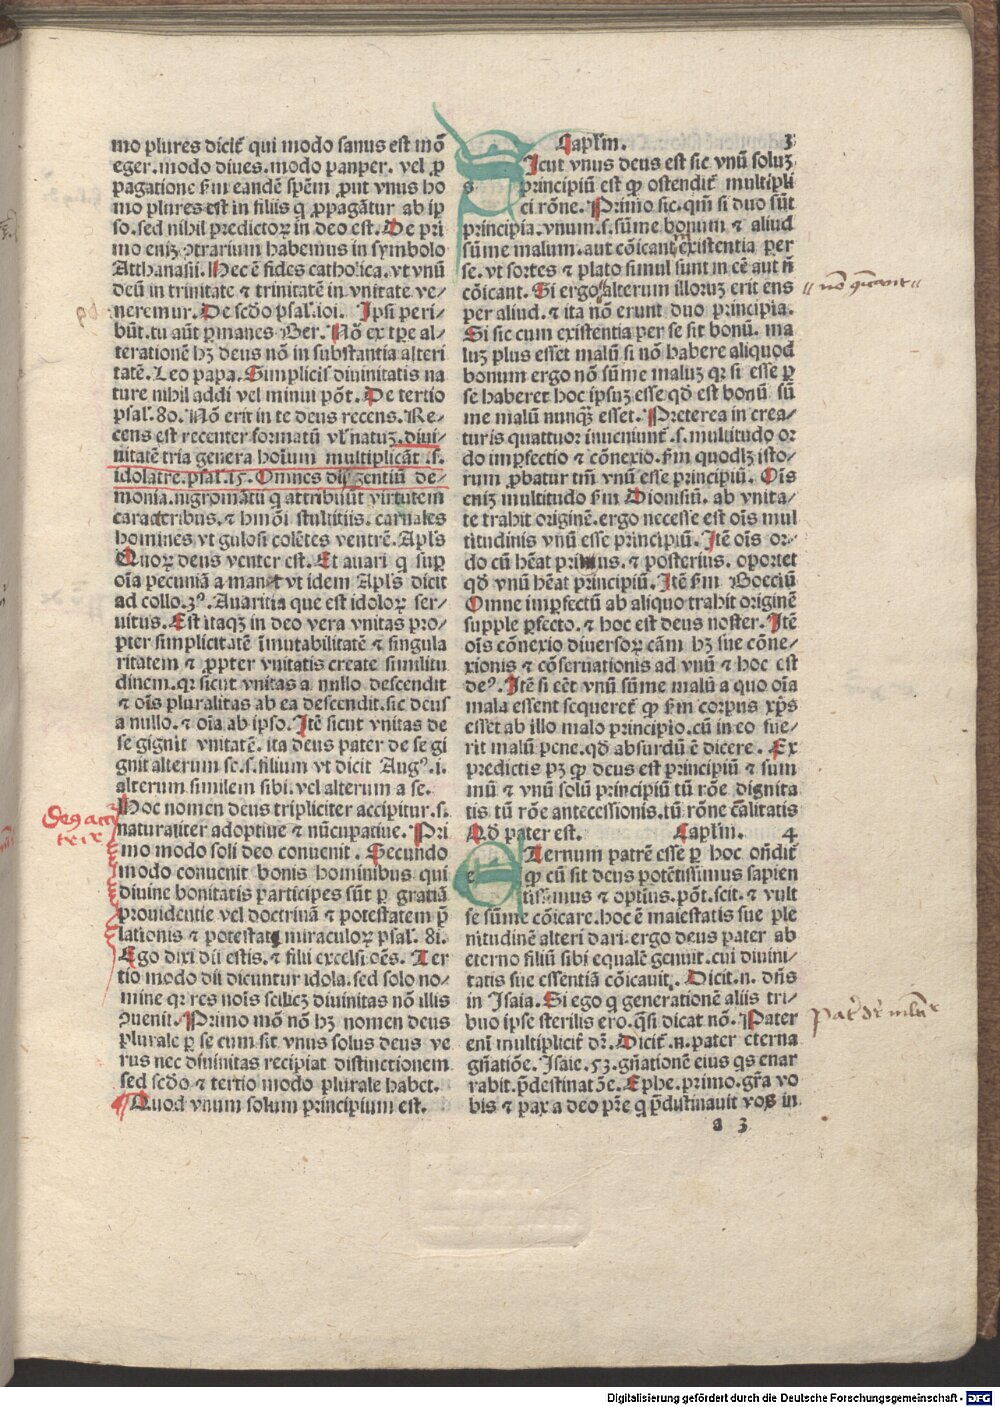 mo plures dicit̃ qui modo sanus est mõ
eger. modo diues. modo panper. vel ꝓ
pagatione ẜm eandẽ spẽm ꝓut vnus ho
mo plures est in filiis q̃ ꝓpagãtur ab ip̃
so. sed nihil predictoꝝ in deo est. De pri
mo eniꝫ ꝯtrarium habemus in symbolo
Atthanasii. Hec ẽ fides catholica. vt vnũ
deũ in trinitate ⁊ trinitatẽ in vnitate ve⸗
neremur. De scd̃o psal. ioi. Ipsi peri⸗
bũt. tu aũt ꝑmanes Ber. Nõ ex tꝑe al⸗
terationẽ hꝫ deus nõ in substantia alteri
tatẽ. Leo papa. Simplicis diuinitatis na
ture nihil addi vel minui põt. De tertio
psal. 80. Nõ erit in te deus recens. Re⸗
cens est recenter formatũ vl̃ natuꝫ. diui⸗
nitatẽ tria genera hoĩum multiplicãt .s.
idolatre. psal. 15. Omnes dii gentiũ de⸗
monia. nigromãtii q̃ attribuũt virtutem
caracteribus. ⁊ hmõi stultitiis. carnales
homines vt gulosi colẽtes ventrẽ. Apl̃s
Quoꝝ deus venter est. Et auari q̃ suꝑ
oĩa pecuniã amant vt idem Apl̃s dicit
ad collo. 3º. Auaritia que est idoloꝝ ser⸗
uitus. Est itaqꝫ in deo vera vnitas pro⸗
pter simplicitatẽ ĩmutabilitatẽ ⁊ singula
ritatem ⁊ ꝓpter vnitatis create similitu
dinem. qꝛ sicut vnitas a nullo descendit
⁊ oĩs pluralitas ab ea descendit. sic deus
a nullo. ⁊ oĩa ab ipso. Itẽ sicut vnitas de
se gignit vnitatẽ. ita deus pater de se gi
gnit alterum se. s. filium vt dicit Augꝰ. i.
alterum similem sibi. vel alterum a se.
Hoc nomen deus tripliciter accipitur. s.
naturaliter adoptiue ⁊ nũcupatiue. Pri
mo modo soli deo conuenit. Secundo
modo conuenit bonis hominibus qui
diuine bonitatis participes sũt ꝑ gratiã
prouidentie vel doctrinã ⁊ potestatem p̃
lationis ⁊ potestatẽ miraculoꝝ psal. 8i.
Ego dixi dii estis. ⁊ filii excelsi oẽs. Ter
tio modo dii dicuntur idola. sed solo no⸗
mine qꝛ res noĩs scilicꝫ diuinitas nõ illis
ꝯuenit. Primo mõ nõ hꝫ nomen deus
plurale ꝑ se cum sit vnus solus deus ve
rus nec diuinitas recipiat distinctionem
sed scd̃o ⁊ tertio modo plurale habet.
¶ Quod vnum solum principium est.
Capl̃m. 3
Sicut vnus deus est sic vnũ soluꝫ
principiũ est qꝫ ostendit̃ multipli
ci rõne. Primo sic. qm̃ si duo sũt
principia. vnum. s. sũme bonum ⁊ aliud
sũme malum. aut cõicant existentia per
se. vt sortes ⁊ plato simul sunt in cẽ aut ñ
cõicant. Si ergo alterum illoruꝫ erit ens
per aliud. ⁊ ita nõ erunt duo principia.
Si sic cum existentia per se sit bonũ. ma
luꝫ plus esset malũ si nõ habere aliquod
bonum ergo nõ sũme maluꝫ qꝛ si esse ꝑ
se haberet hoc ipsuꝫ esse qd̃ est bonũ sũ
me malũ nunqꝫ esset. Preterea in crea⸗
turis quattuor inueniunt̃ .s. multitudo or
do imꝑfectio ⁊ cõnexio. ẜm quodlꝫ isto⸗
rum ꝓbatur tm̃ vnũ esse principiũ. Oĩs
eniꝫ multitudo ẜm Dionisiũ. ab vnita⸗
te trahit originẽ. ergo necesse est oĩs mul
titudinis vnũ esse principiũ. Itẽ oĩs or⸗
do cũ hẽat primus. ⁊ posterius. oportet
qd̃ vnũ hẽat principiũ. Itẽ ẜm Boeciũ
Omne imꝑfectũ ab aliquo trahit originẽ
supple ꝑfecto. ⁊ hoc est deus noster. Itẽ
oĩs cõnexio diuersoꝝ cãm hꝫ sue cõne⸗
xionis ⁊ cõseruationis ad vnũ ⁊ hoc est
deꝰ. Itẽ si eẽt vnũ sũme malũ a quo oĩa
mala essent sequeret̃ qꝫ ẜm corpus xp̃s
esset ab illo malo principio. cũ in eo fue⸗
rit malũ pene. qd̃ absurdũ ẽ dicere. Ex
predictis pꝫ qꝫ deus est principiũ ⁊ sum
mũ ⁊ vnũ solũ principiũ tũ rõe dignita
tis tũ rõne antecessionis. tũ rõne cãlitatis
Qd̃ pater est. Capl̃m. 4
Eternum patrẽ esse ꝑ hoc oñdit̃
qꝫ cũ sit deus potẽtissimus sapien
tissimus ⁊ optĩus. põt. scit. ⁊ vult
se sũme cõicare. hoc ẽ maiestatis sue ple
nitudinẽ alteri dari. ergo deus pater ab
eterno filiũ sibi equalẽ genuit. cui diuini⸗
tatis sue essentiã cõicauit. Dicit. n. dñs
in Isaia. Si ego q̃ generationẽ aliis tri⸗
buo ipse sterilis ero. q̃si dicat nõ. Pater
enĩ multiplicit̃ dr̃. Dicit̃ .n. pater eterna
gñatiõe. Isaie. 53. gñationẽ eius q̃s enar
rabit. p̃destinatõe. Ephe. primo. gr̃a vo
bis ⁊ pax a deo pr̃e q̃ p̃dustinauit vos in
a 3